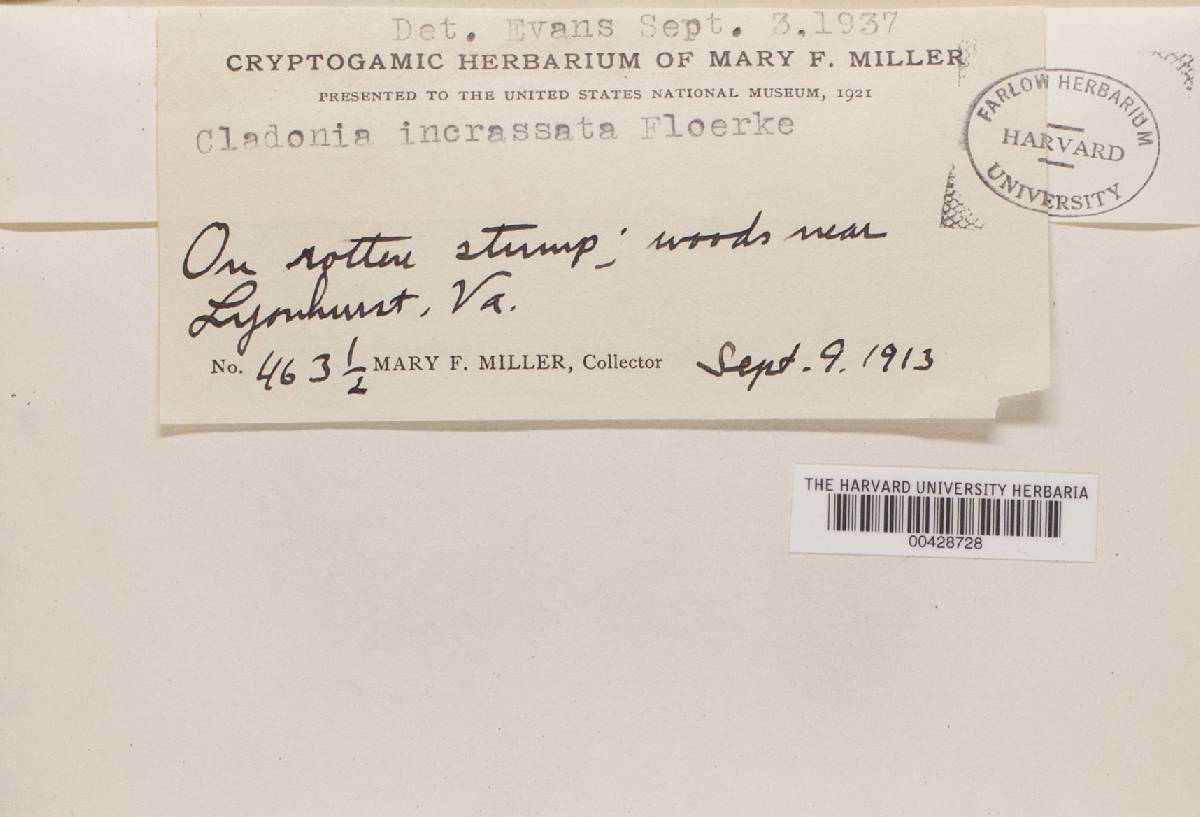 Det. Evans Sept. 3,1937
CRYPTOGAMIC HERBARIUM OF MARY F. MILLER
PRESENTED TO THE UNITED STATES NATIONAL MUSEUM, 1921
Cladonia incrassata Floerke
On rotten stump; woods near
Lyonhurst, Va.
No. 463 1/2 MARY F. MILLER, Collector Sept. 9. 1913
FARLOW HERBARIUM
HARVARD
UNIVERSITY
THE HARVARD UNIVERSITY HERBARIA
00428728